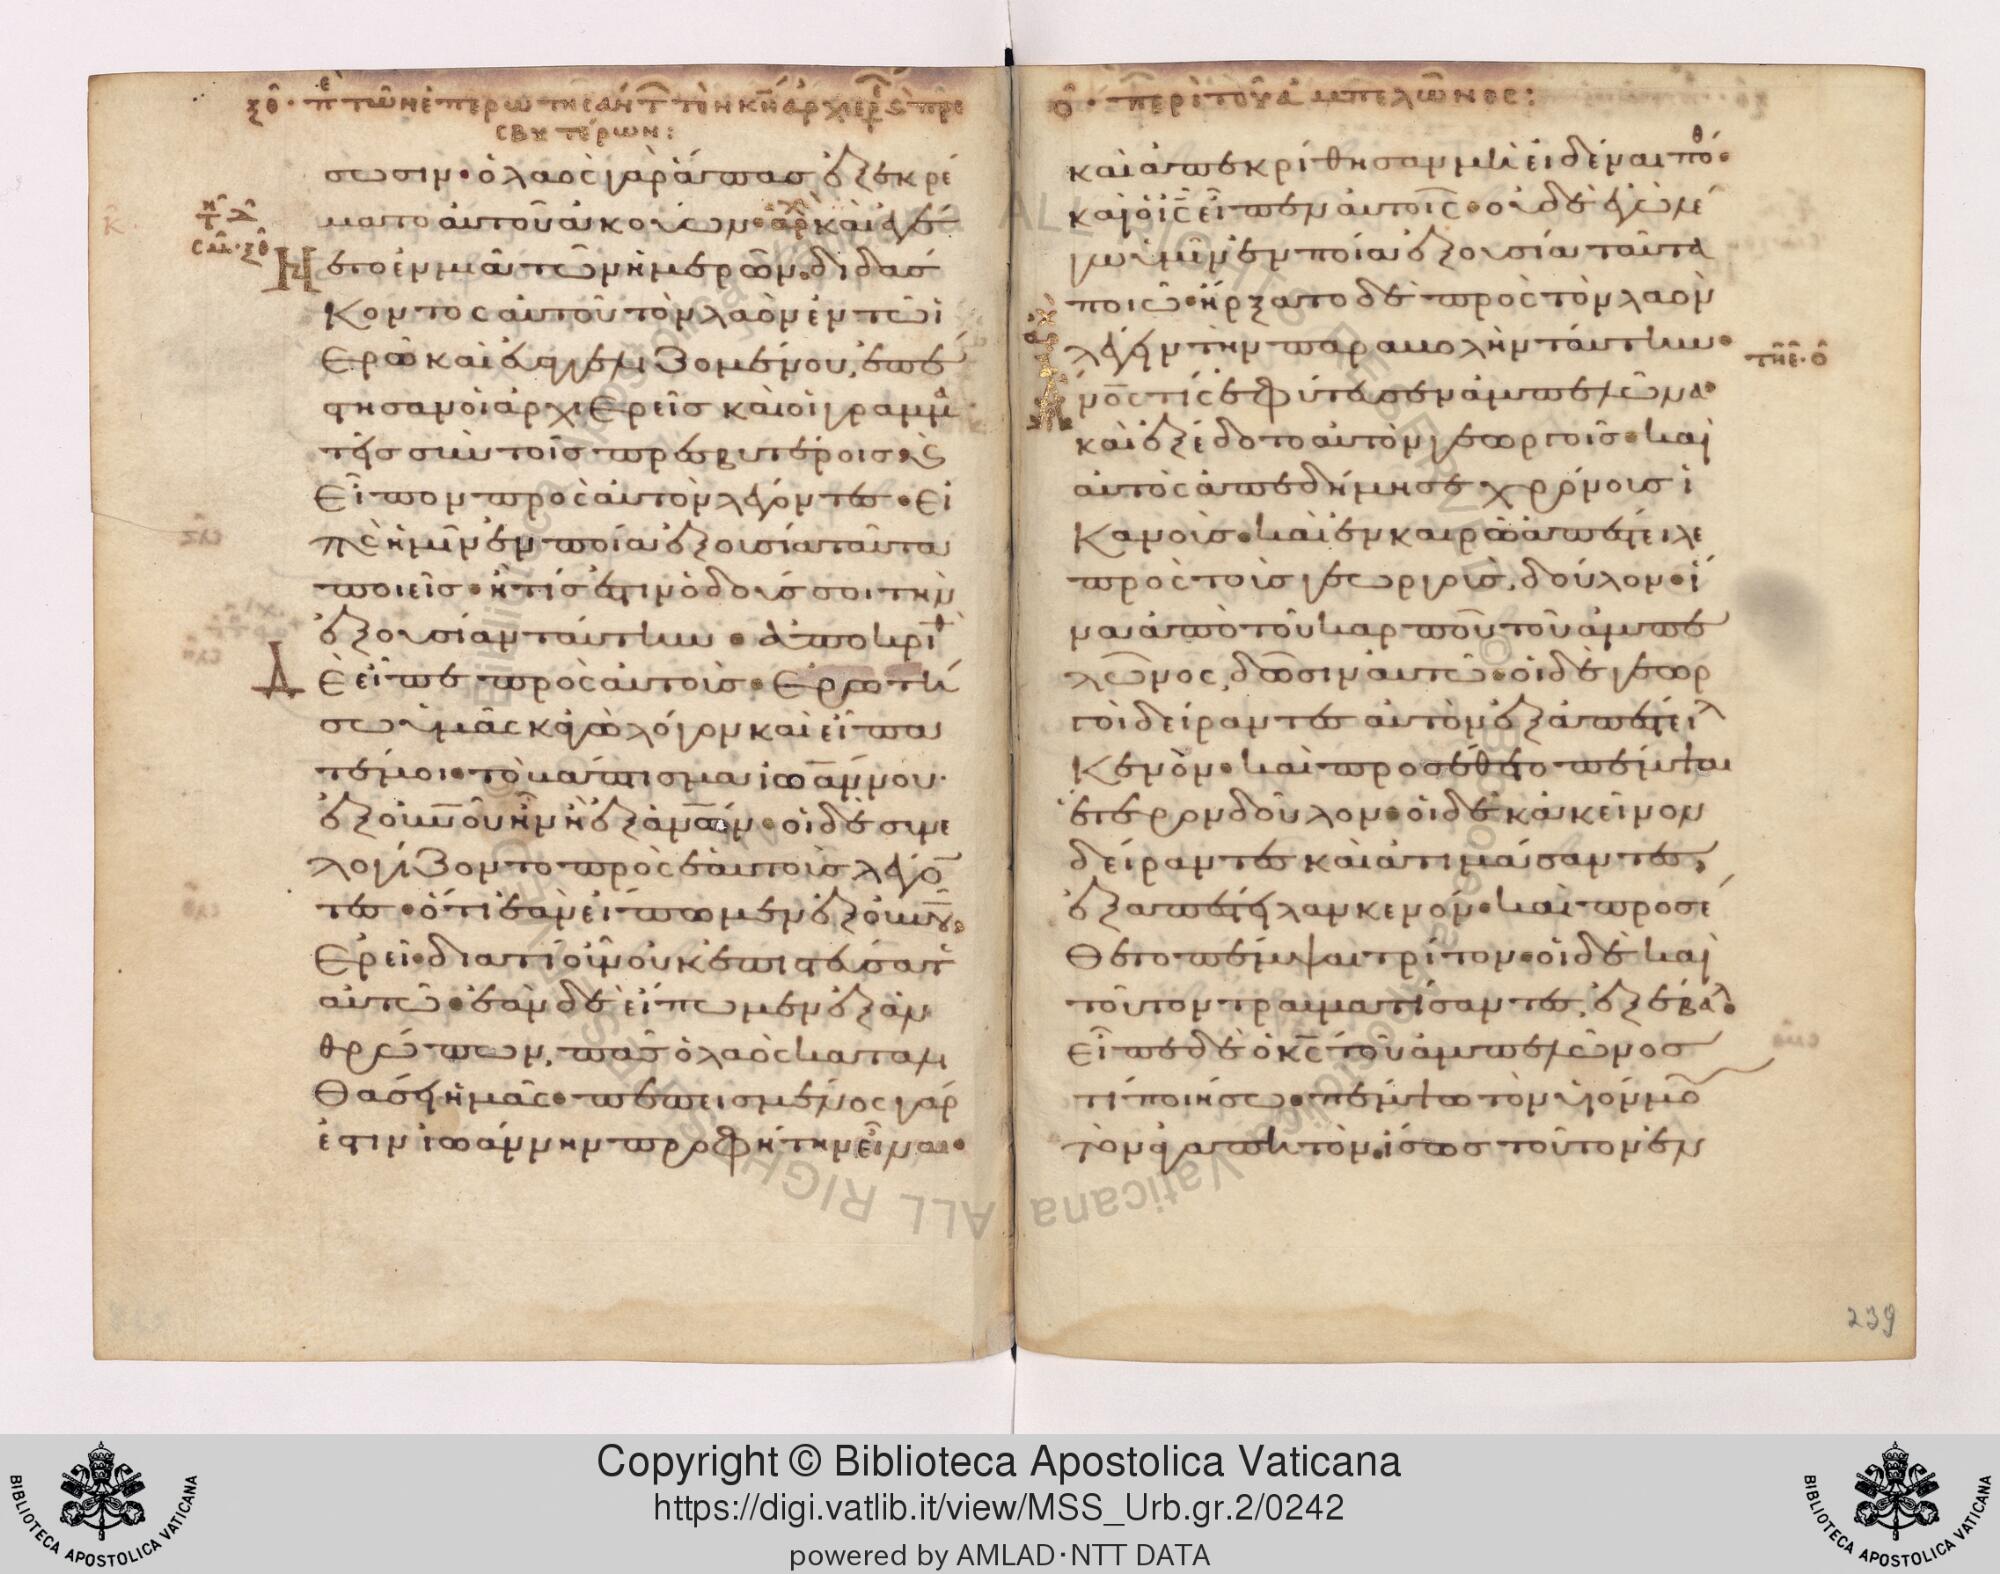 ξθ · πε τῶν ἐπερωτησάντ τὸν κν ἀρχιερ ϛ πρε
σβυτέρων :
σωσιν · ὁ λαὸς γὰρ ἅπασ ἐξεκρέ
ματο αὐτοῦ ἀκούων · καὶ ἐγέ
ετο ἐν μιᾶ τῶν ἡμερῶν · διδάσ
κοντος αὐτοῦ τὸν λαὸν ἐν τῶ ἱ
ερῶ καὶ εὐαγγελιζομένου, ἐπέ
στησαν οἱ ἀρχιερεῖσ καὶ οἱ γραμμα
τεῖσ σὺν τοῖσ πρεσβυτέροισ · ϛ
εἶπον πρὸς αὐτὸν λέγοντεσ · εἰ
πὲ ἡμῖν ἐν ποία ἐξουσία ταῦτα
ποιεῖσ · ἢ τίσ ἐστιν ὁ δούσ σοι τὴν
ἐξουσίαν ταύτην · ἀποκριθ
Δ ὲ εἶπε πρὸς αὐτούσ · ἐρωτή
σω ὑμᾶς κἀγὼ λόγον καὶ εἴπα
τέ μοι · τὸ βάπτισμα ἰωάννου ·
ἐξ οὐνοῦ ἦν ἢ ἐξ ἀνῶν · οἱ δὲ συνε
λογίζοντο πρὸς ἑαυτοὺσ λέγο
τεσ · ὅτι ἐὰν εἴπωμεν ἐξ οὐνοῦ,
ἐρεῖ · διατί οὖν οὐκ ἐπιστεύσατε
αὐτῶ · ἐὰν δὲ εἴπωμεν ἐξ ἀν
θρώπων, πᾶσ ὁ λαὸς καταλι
θάσει ἡμᾶς · πεπεισμένος γάρ
ἐστιν ἰωάννην προφήτην εἶναι ·
ο · περὶ τοῦ ἀμπελῶνος :
καὶ ἀπεκρίθησαν μὴ εἰδέναι πόθ ·
καὶ ὁ ις εἶπεν αὐτοῖς · οὐδὲ ἐγὼ λέ
γω ὑμῖν ἐν ποία ἐξουσία ταῦτα
ποιῶ · ἤρξατο δὲ πρὸς τὸν λαὸν
λέγειν τὴν παραβολὴν ταύτην ·
Α νος τίς ἐφύτευσεν ἀμπελῶνα ·
καὶ ἐξέδοτο αὐτὸν γεωργοῖσ · καὶ
αὐτὸς ἀπεδήμησε χρόνουσ ἱ
κανούσ · καὶ ἐν καιρῶ ἀπέστειλε
πρὸς τοὺσ γεωργούσ, δοῦλον · ἵ
να ἀπὸ τοῦ καρποῦ τοῦ ἀμπε
λῶνος, δῶσιν αὐτῶ · οἱ δὲ γεωρ
γοὶ δείραντεσ αὐτὸν ἐξαπέστειλ
κενόν · καὶ προσέθετο πέμψαι
ἕτερον δοῦλον · οἱ δὲ κἀκεῖνον
δείραντεσ καὶ ἀτιμάσαντεσ,
ἐξαπέστειλαν κενόν · καὶ προσέ
θετο πέμψαι τρίτον · οἱ δὲ καὶ
τοῦτον τραυματίσαντεσ, ἐξέβαλ ·
εἶπε δὲ ὁ κς τοῦ ἀμπελῶνοσ
τί ποιήσω · πέμψω τὸν υἱόν μου
τὸν ἀγαπητόν · ἴσωσ τοῦτον ἐν
239
Copyright © Biblioteca Apostolica Vaticana
https://digi.vatlib.it/view/MSS_Urb.gr.2/0242
powered by AMLAD·NTT DATA
BIBLIOTECA APOSTOLICA VATICANA
BIBLIOTECA APOSTOLICA VATICANA